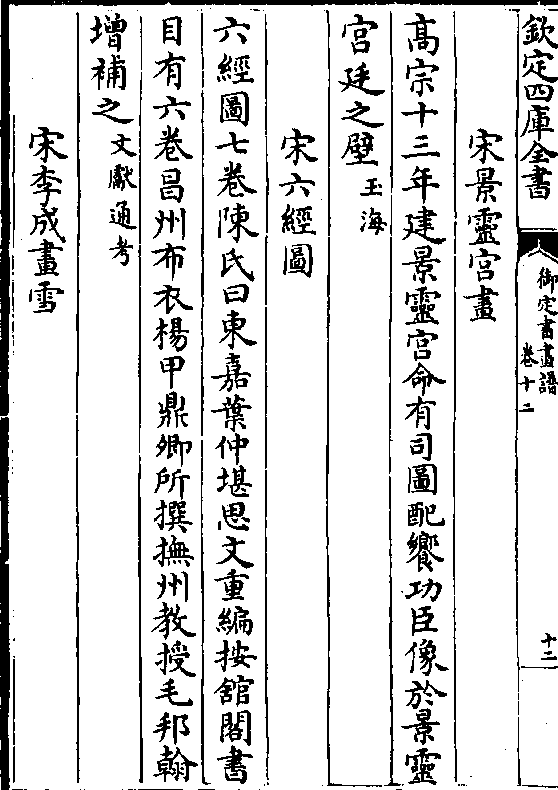 欽定四庫全書
御定書畫譜
卷十二
十二
宋景靈宮畫
髙宗十三年建景靈宮命有司圖配饗功臣像於景靈
宮廷之壁玉海
宋六經圖
六經圖七卷陳氏曰東嘉葉仲堪思文重編按舘閣書
目有六卷昌州布衣楊甲鼎卿所撰撫州教授毛邦翰
增補之文獻通考
宋李成畫雪